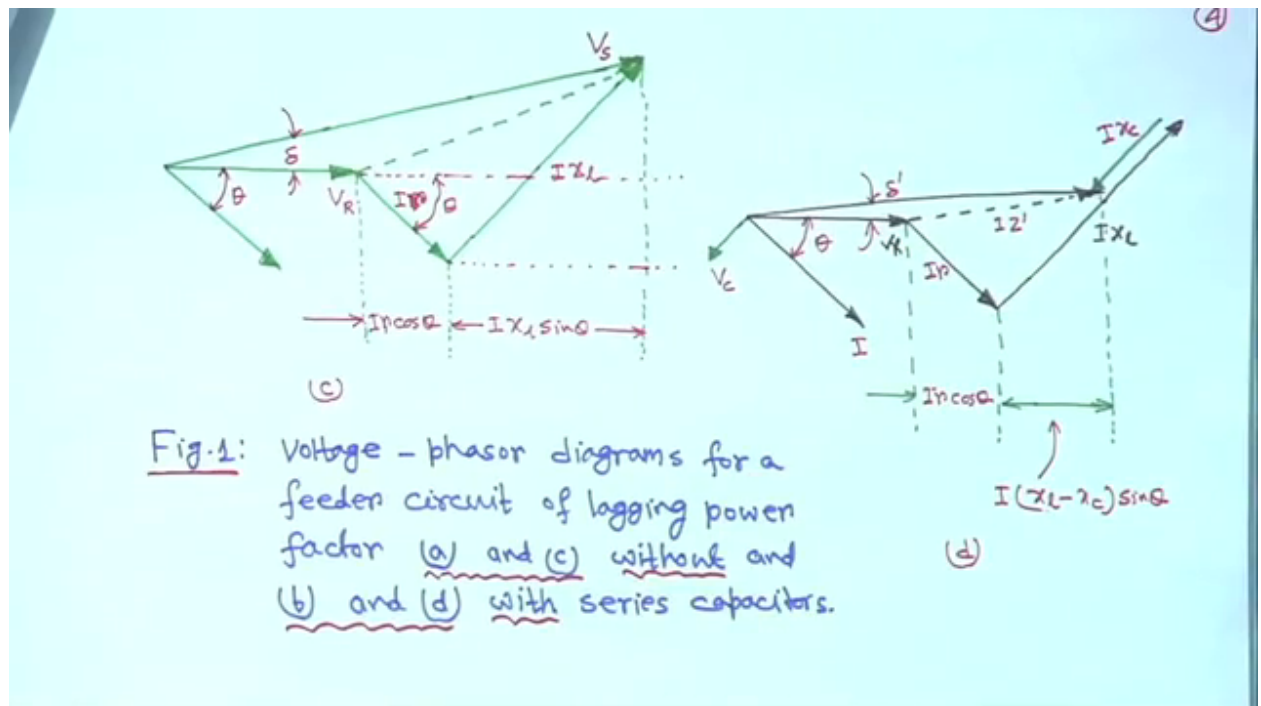 4
V_S
δ
θ
V_R
Ir
θ
I x_L
Ir cosθ
I x_L sinθ
(c)
I x_c
δ'
θ
V_R
I z'
I x_L
V_c
Ir
I
Ir cosθ
I (x_L - x_c) sinθ
(d)
Fig.1: Voltage - phasor diagrams for a
feeder circuit of lagging power
factor (a) and (c) without and
(b) and (d) with series capacitors.